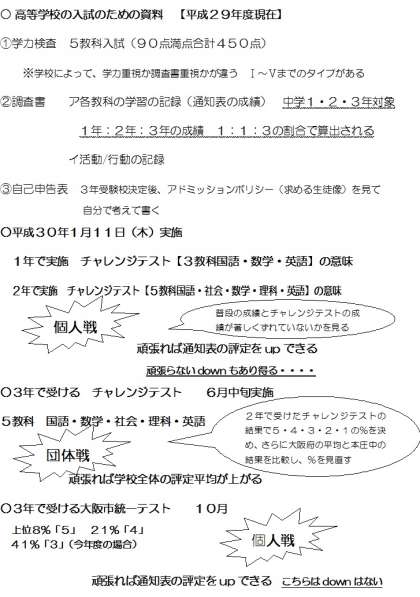 〇 高等学校の入試のための資料　【平成２９年度現在】
①学力検査　５教科入試（９０点満点合計４５０点）
※学校によって、学力重視か調査書重視かが違う　Ⅰ～Ⅴまでのタイプがある
②調査書　　ア各教科の学習の記録（通知表の成績）　中学１・２・３年対象
１年：２年：３年の成績　１：１：３の割合で算出される
イ活動/行動の記録
③自己申告表　３年受験校決定後、アドミッションポリシー（求める生徒像）を見て
自分で考えて書く
〇平成３０年１月１１日（木）実施
１年で実施　チャレンジテスト【３教科国語・数学・英語】の意味
２年で実施　チャレンジテスト【５教科国語・社会・数学・理科・英語】の意味
個人戦
普段の成績とチャレンジテストの成
績が著しくずれていないかを見る
頑張れば通知表の評定を up できる
頑張らない down もあり得る・・・・
〇３年で受ける　チャレンジテスト　　６月中旬実施
５教科　国語・数学・社会・理科・英語
団体戦
２年で受けたチャレンジテストの
結果で５・４・３・２・１の％を決
め、さらに大阪府の平均と本庄中の
結果を比較し、％を見直す
頑張れば学校全体の評定平均が上がる
〇３年で受ける大阪市統一テスト　　１０月
上位８％「５」　２１％「４」
４１％「３」（今年度の場合）
個人戦
頑張れば通知表の評定を up できる　こちらは down はない